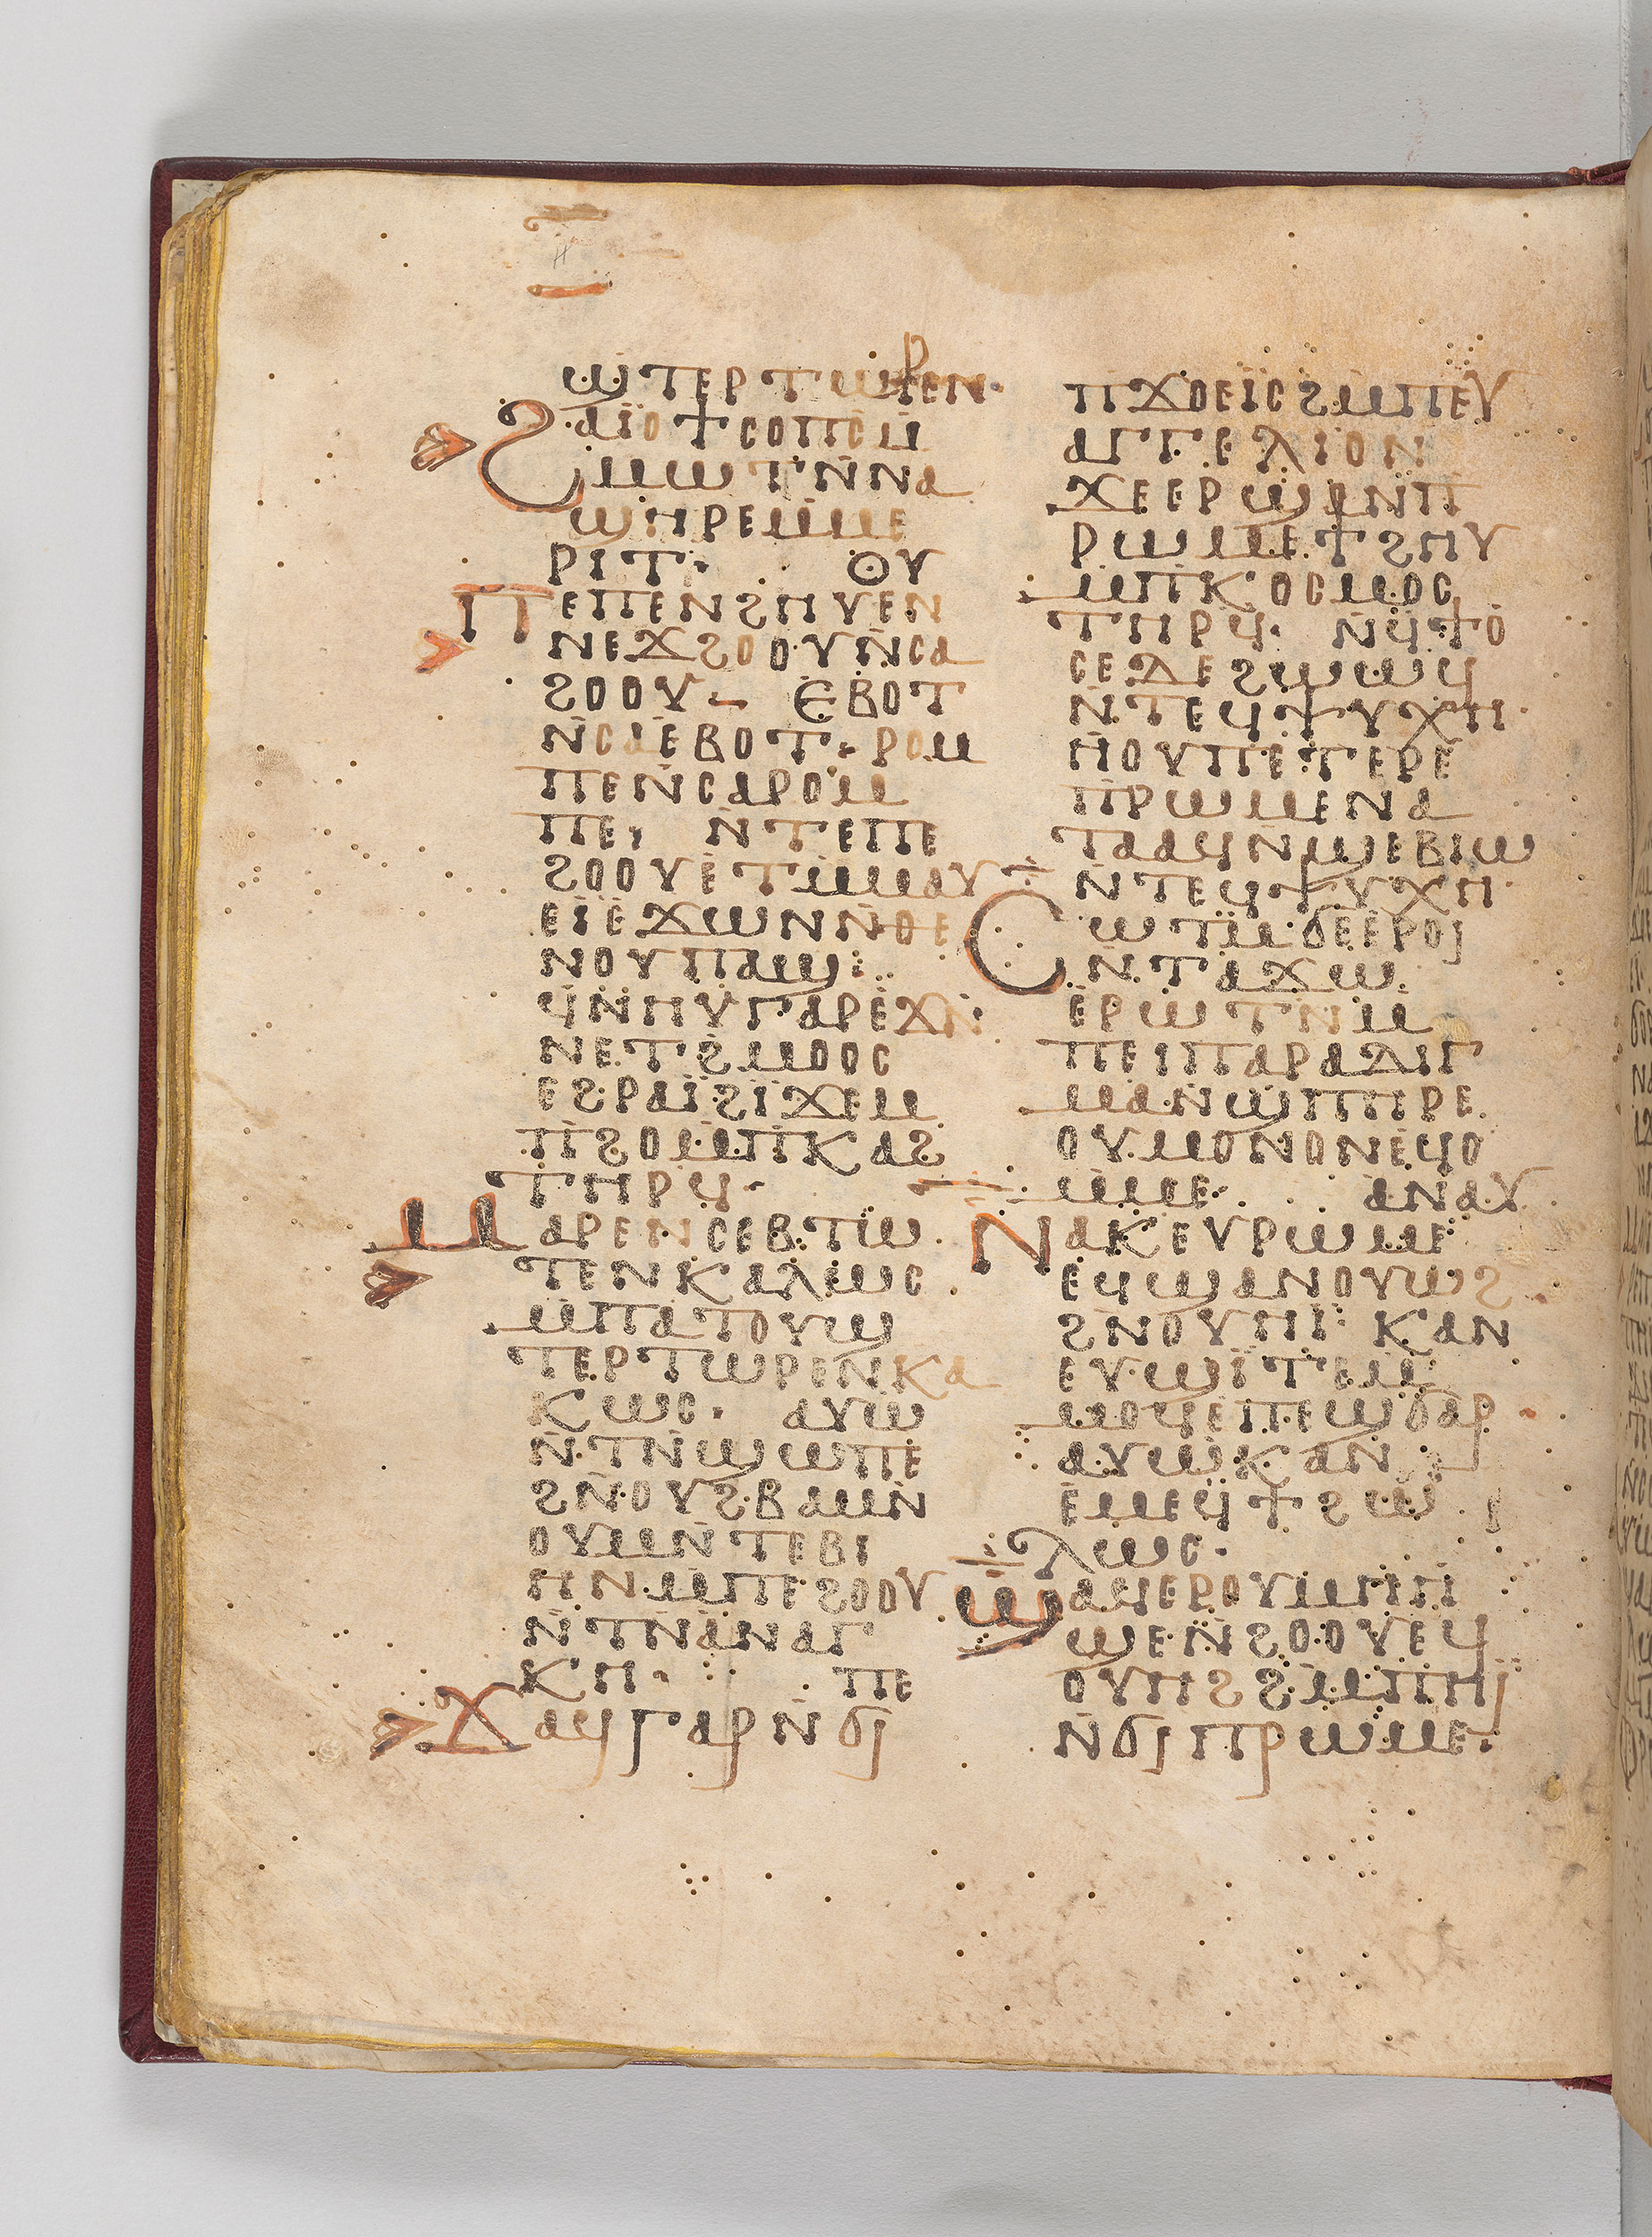 ϣⲧⲉⲣⲧⲱⲣⲉⲛ·
ϩⲁⲓ̈ⲟ ϯⲥⲟⲡⲥ̄ⲙ̄
ⲙⲱⲧⲛ̄ⲛⲁ
ϣⲏⲣⲉⲙⲙⲉ
ⲣⲓⲧ· ⲟⲩ
ⲡⲉⲡⲉⲛϩⲏⲩⲉⲛ
ⲛⲉϫϩⲟⲟⲩⲛ̄ⲥⲁ
ϩⲟⲟⲩ– ⲉⲃⲟⲧ
ⲛ̄ⲥⲁⲉⲃⲟⲧ· ⲣⲟⲙ
ⲡⲉⲛ̄ⲥⲁⲣⲟⲙ
ⲡⲉ, ⲛ̄ⲧⲉⲡⲉ
ϩⲟⲟⲩⲉ̇ⲧⲙ̄ⲙⲁⲩ
ⲉⲓ̈ⲉ̇ϫⲱⲛⲛ̄ⲑⲉ
ⲛⲟⲩⲡⲁϣ:
ϥⲛ̄ⲏⲩⲅⲁⲣⲉ̇ϫⲛ̄
ⲛⲉⲧϩⲙⲟⲟⲥ
ⲉϩⲣⲁⲓ̈ϩⲓ̈ϫⲉⲙ
ⲡϩⲟⲙ̄ⲡⲕⲁϩ
ⲧⲏⲣϥ·
ⲙⲁⲣⲉⲛⲥⲉⲃⲧⲱ
ⲧⲉⲛⲕⲁⲗⲱⲥ
ⲙ̄ⲡⲁⲧⲟⲩϣ
ⲧⲉⲣⲧⲱⲣⲉⲛⲕⲁ
ⲕⲱⲥ· ⲁⲩⲱ
ⲛ̄ⲧⲛ̄ϣⲱⲡⲉ
ϩⲛ̄ⲟⲩϩⲃⲁⲙⲛ̄
ⲟⲩⲙⲛ̄ⲧⲉⲃⲓ
ⲏⲛⲙ̄ⲡⲉϩⲟⲟⲩ
ⲛ̄ⲧⲛ̄ⲁⲛⲁⲅ
ⲕⲏ· ⲡⲉ
ϫⲁϥⲅⲁⲣⲛ̄ϭⲓ
ⲡϫⲟⲉⲓ̈ⲥϩⲙ̄ⲡⲉⲩ
ⲁⲅⲅⲉⲗⲓⲟⲛ
ϫⲉⲉⲣϣⲁⲛⲡ
ⲣⲱⲙⲉϯϩⲏⲩ
ⲙ̄ⲡⲕⲟⲥⲙⲟⲥ
ⲧⲏⲣϥ· ⲛϥ̄ϯⲟ
ⲥⲉⲇⲉϩⲱⲱϥ
ⲛ̄ⲧⲉϥⲯⲩⲭⲏ·
ⲏⲟⲩⲡⲉⲧⲉⲣⲉ
ⲡⲣⲱⲙⲉⲛⲁ
ⲧⲁⲁϥⲛ̄ϣⲉⲃⲓⲱ
ⲛ̄ⲧⲉϥⲯⲩⲭⲏ·
ⲥⲱⲧⲙ̄ϭⲉⲉ̇ⲣⲟⲓ
ⲛ̄ⲧⲁϫⲱ
ⲉ̇ⲣⲱⲧⲛ̄ⲙ
ⲡⲉⲓⲡⲁⲣⲁⲇⲓⲅ
ⲙⲁⲛ̄ϣⲡⲏⲣⲉ
ⲟⲩⲙⲟⲛⲟⲛⲉϥⲟ
ⲙⲙⲉ· ⲁⲛⲁⲩ
ⲛⲁⲕⲉⲩⲣⲱⲙⲉ
ⲉϥϣⲁⲛⲟⲩⲱϩ
ϩⲛⲟⲩⲏⲓ: ⲕⲁⲛ
ⲉⲩϣⲓ̈ⲧⲉⲙ
ⲙⲟϥⲉⲡⲉϣϭⲁⲣ
ⲁⲩⲱⲕⲁⲛ
ⲉ̇ⲙⲉϥϯϩⲱ
ⲗⲱⲥ·
ϣⲁϥⲉⲣⲟⲩⲙⲏⲏ
ϣⲉⲛ̄ϩⲟⲟⲩⲉϥ
ⲟⲩⲏϩϩⲙ̄ⲡⲏⲓ̈
ⲛ̄ϭⲓⲡⲣⲱⲙⲉ·